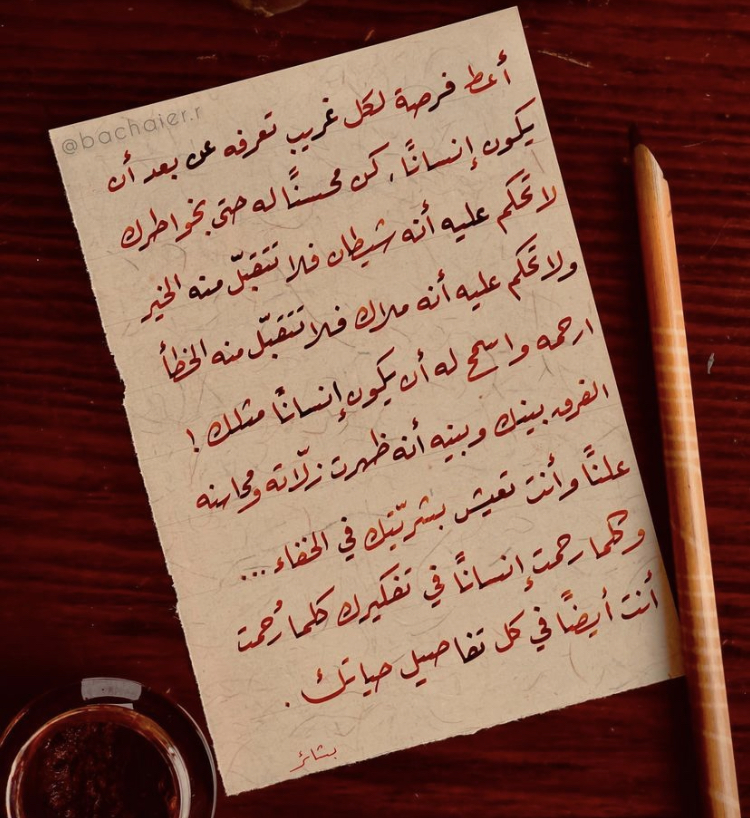 @bachaier.r
أعط فرصة لكل غريب تعرفه عن بعد أن
يكون إنسانًا، كن محسنًا له حتى بخواطرك
لا تحكم عليه أنه شيطان فلا تتقبّل منه الخير
ولا تحكم عليه أنه ملاك فلا تتقبّل منه الخطأ
ارحمه واسمح له أن يكون إنسانًا مثلك !
الفرق بينك وبينه أنه ظهرت زلّاته ومحاسنه
علنًا وأنت تعيش بشريّتك في الخفاء ...
وكلما رحمت إنسانًا في تفكيرك كلما رُحمت
أنت أيضًا في كل تفاصيل حياتك .
بشائر